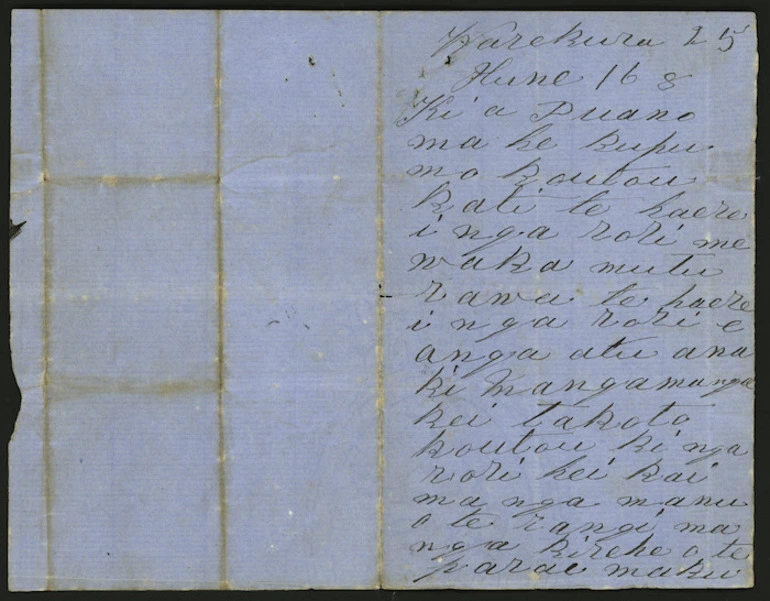 Warekura 25
Hune 168
Ki a Puano
ma he kupu
mo koutou
kati te haere
i nga rori me
waka mutu
rawa te haere
i nga rori e
anga atu ana
ki Mangamanga
kei takoto
koutou ki nga
rori hei kai
ma nga manu
o te rangi ma
nga kirehe o te
parae maku